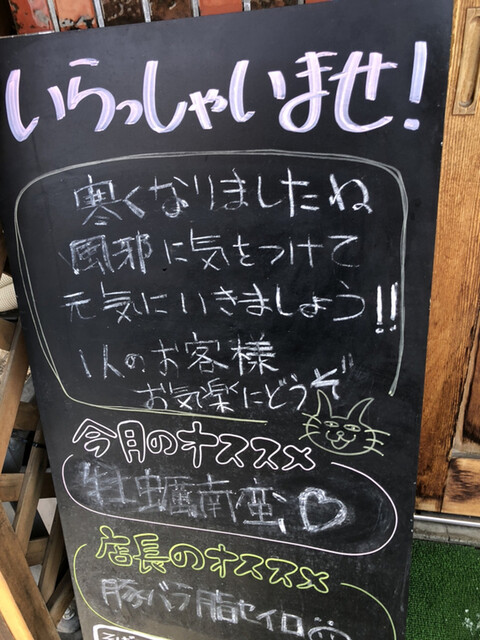 いらっしゃいませ!
寒くなりましたね
風邪に気をつけて
元気にいきましょう!!
1人のお客様
お気楽にどうぞ
今月のオススメ
牡蠣南蛮♡
店長のオススメ
豚バラ脂セイロ